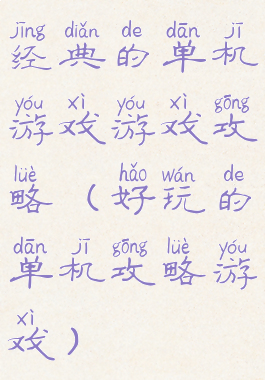 jīng diǎn de dān jī
经典的单机
yóu xì yóu xì gōng
游戏游戏攻
lüè hǎo wán de
略（好玩的
dān jī gōng lüè yóu
单机攻略游
xì
戏）